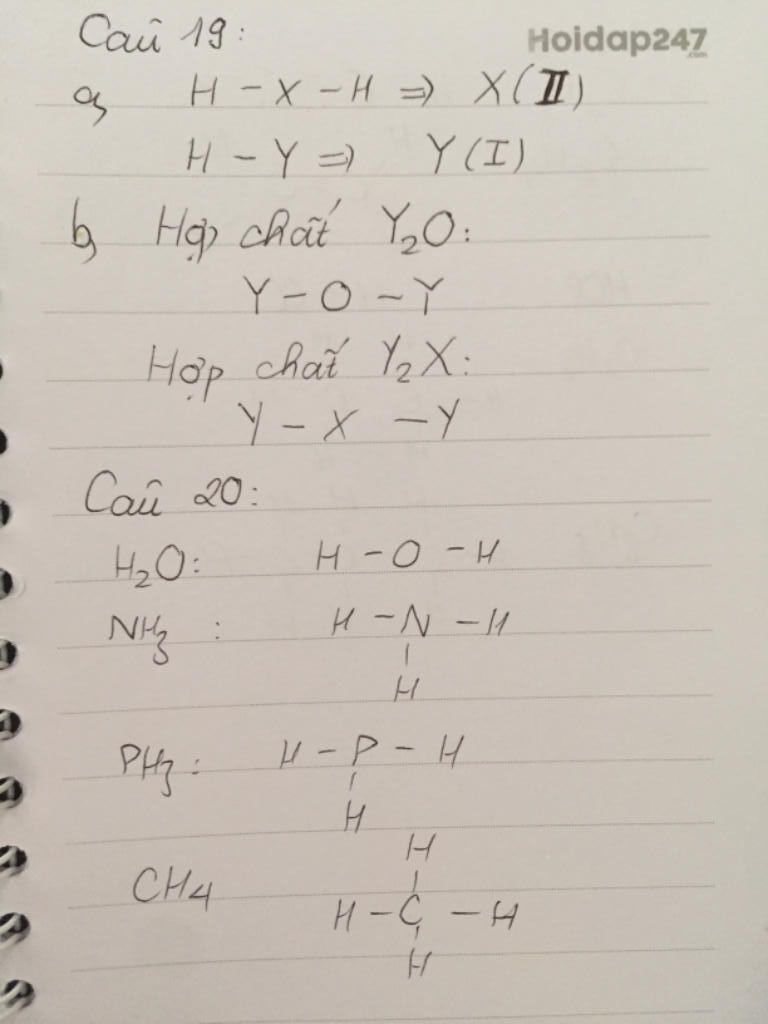 Câu 19:
Hoidap247
.com
a, H - X - H => X (II)
H - Y => Y (I)
b, Hợp chất Y₂O:
Y - O - Y
Hợp chất Y₂X:
Y - X - Y
Câu 20:
H₂O: H - O - H
NH₃ : H - N - H
|
H
PH₃ : H - P - H
|
H
H
|
CH4 H - C - H
|
H